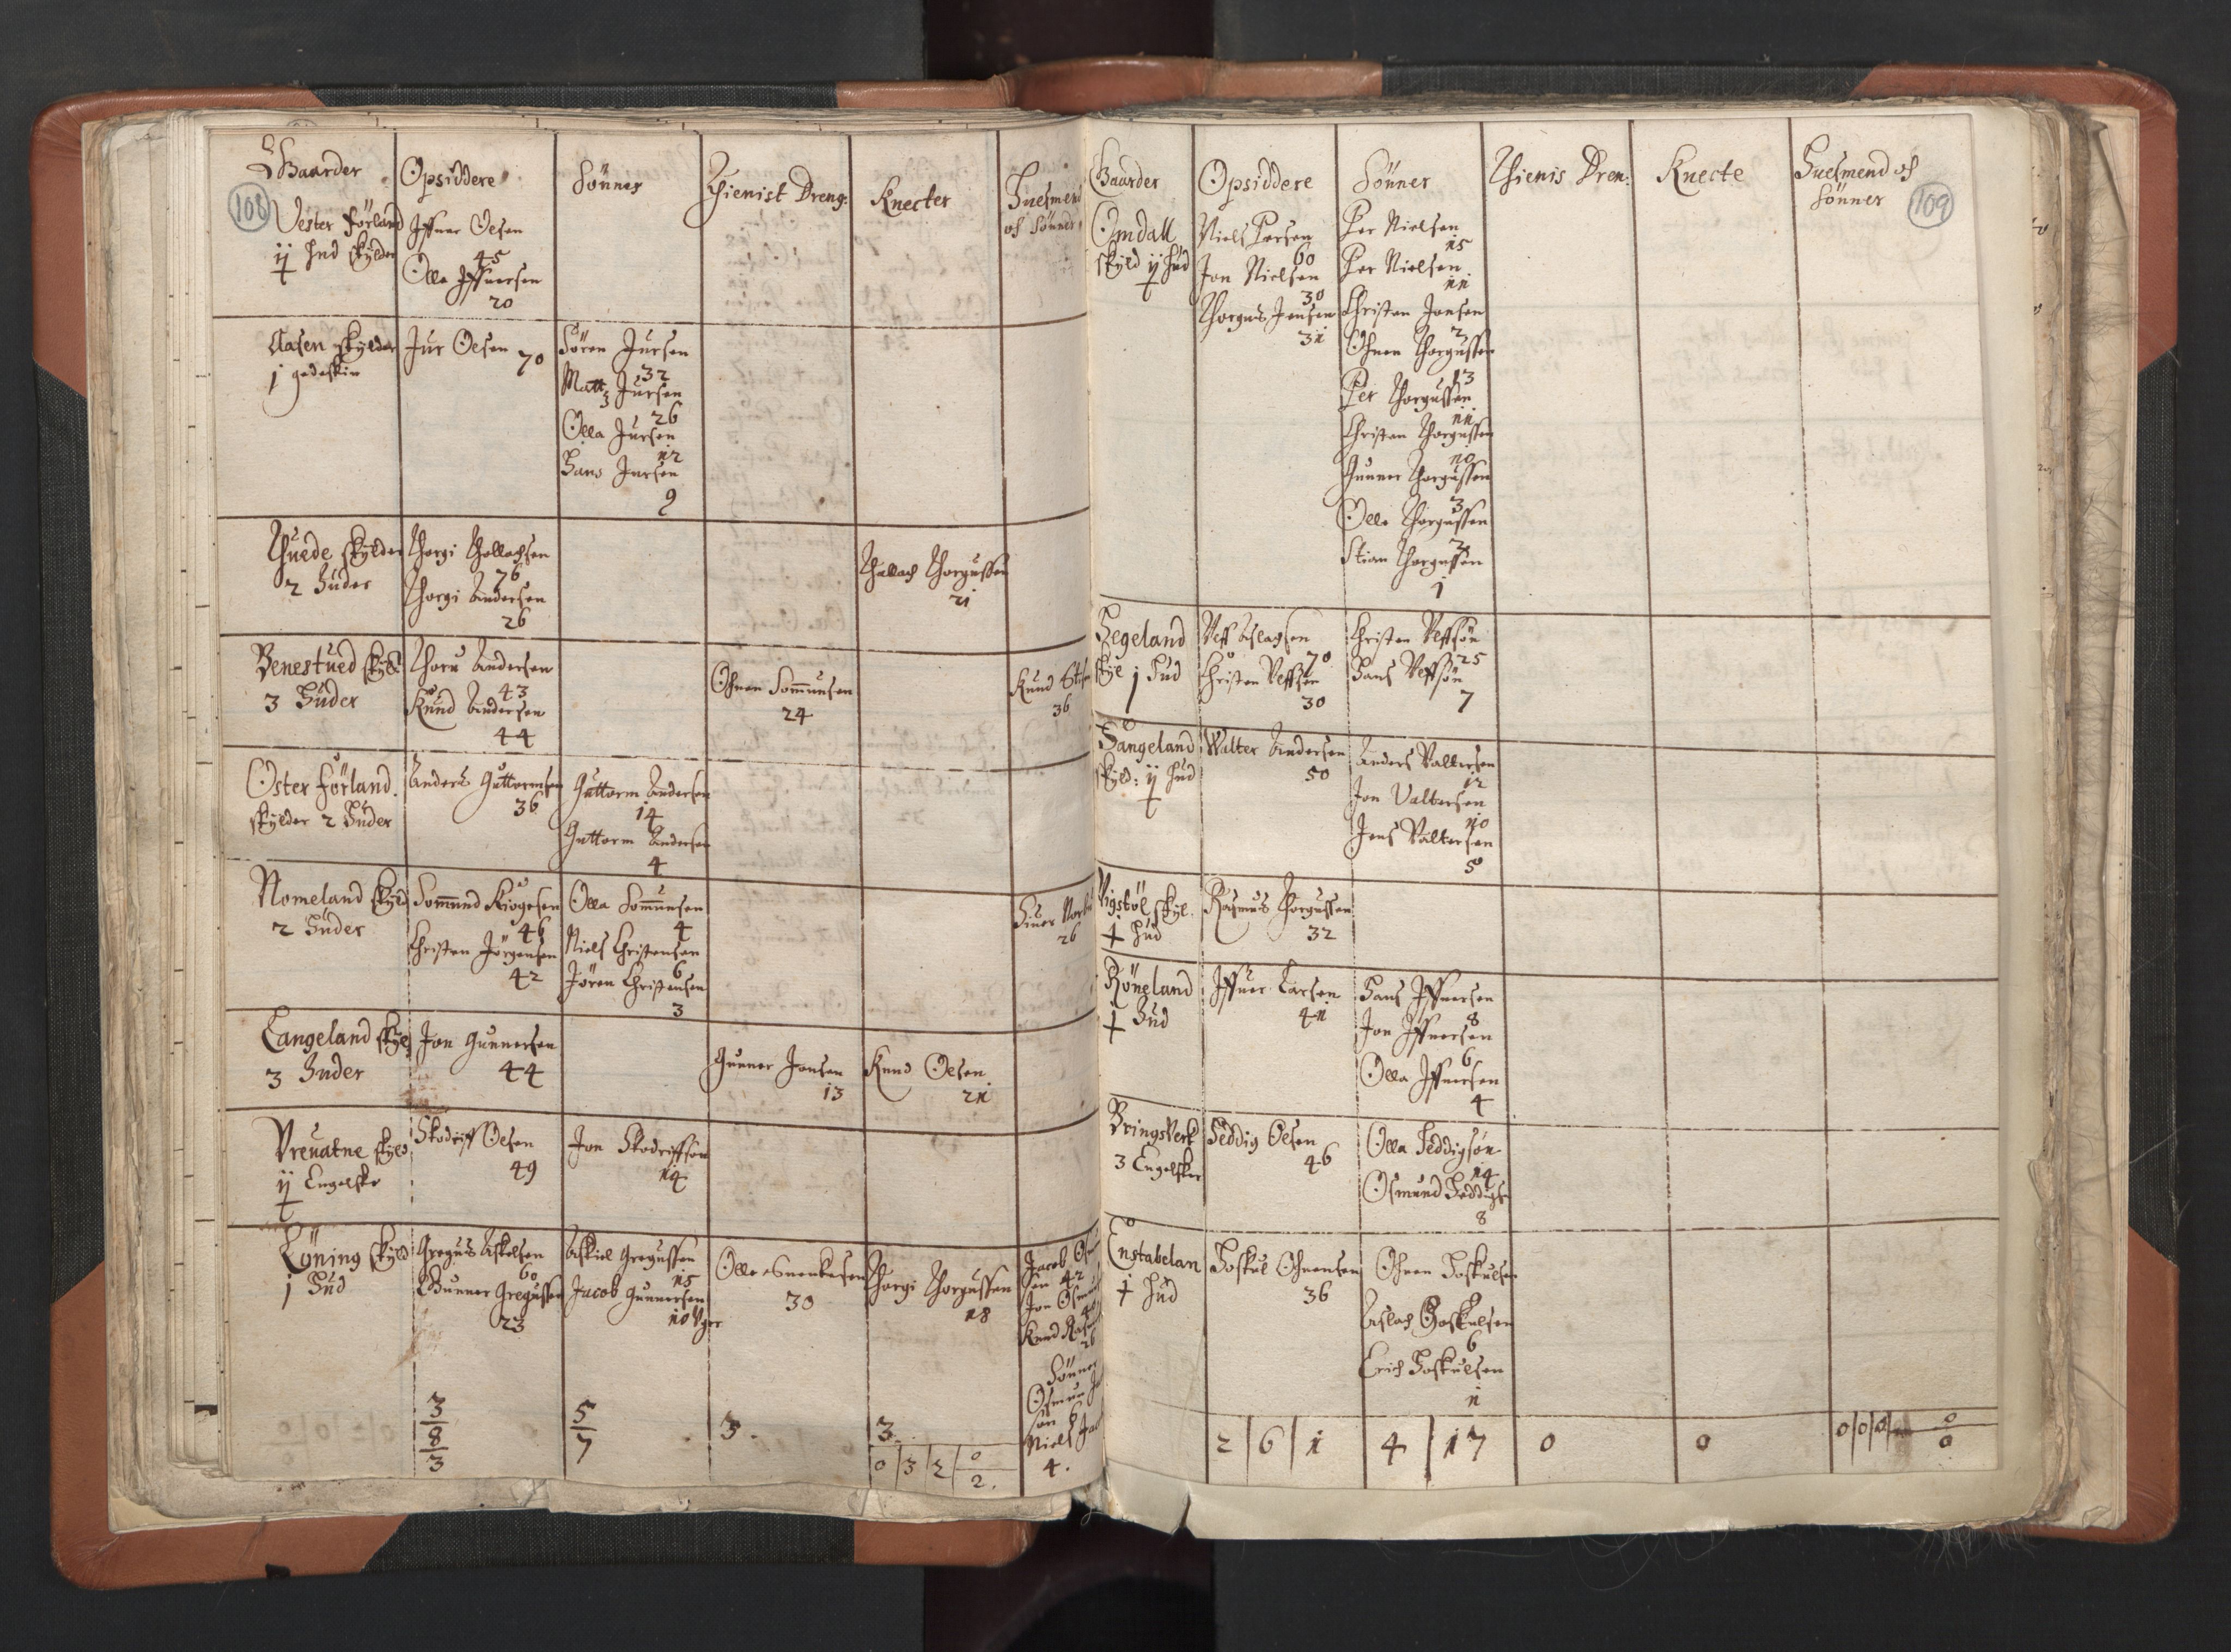 108
Gaarder
Opsiddere
Sönner
Thienist Dreng:
Knecter
Huesmend
och Sönner
Vester Förland
ij Hud skylder
Iffuer Oelsen
45
Olle Iffuersen
20
Aasen skylder
j gedeskin
Jur Oelsen 70
Sören Jursen
32
Matz Jursen
26
Olla Jursen
12
Hans Jursen
9
Thuede skylder
2 Huder
Thorgi Thollachsen
76
Thorgi Andersen
26
Thallach Thorgussen
21
Benestued skyld
3 Huder
Thoru Andersen
43
Knud Andersen
44
Ohnen Sommunsen
24
Knud
36
Oster Förland
skylder 2 Huder
Anders Guttormsen
36
Guttorm Andersen
14
Guttorm Andersen
4
Nomeland skyld
2 Huder
Sommund Kiogesen
46
Christen Jörgensen
42
Olla Sommunsen
4
Niels Christensen
6
Jören Christensen
3
26
Langeland skyld
3 Huder
Jon Gunnersen
44
Gunner Jonsen
13
Knud Oelsen
21
Vreuatne skyld
ij Engelske
Skodriff Oelsen
49
Jon Skodriffsön
14
Löning skyld
j Hud
Gregus Askelsen
60
Gunner Gregussen
23
Askiel Gregussen
15
Jacob Gunnersen
10 Vger
Olle Suenkesen
30
Thorgi Thorgussen
18
Jacob
sen 42
Jon
40
Knud
26
Sönner
sön 6
Niels
4.
3
8
3
5
7
3.
3.
0 3 2 0
2.
109
Gaarder
Opsiddere
Sönner
Thienis Dren:
Knecte
Huesmend och
Sönner
Omdall
skyld ij Hud
Niels Persen
60
Jon Nielsen
30
Thorgus Jensen
31
Per Nielsen
15
Per Nielsen
11
Christen Jonsen
2
Ohnen Thorgussen
13
Per Thorgussen
11
Christen Thorgussen
10
Gunner Thorgussen
3
Olle Thorgussen
2
Stian Thorgussen
1
Hegeland
skyl j Hud
Veff Aslagsen
70
Christen Veffsen
30
Christen Veffsön
25
Hans Veffsön
7
Hangeland
skyld: ij Hud
Walter Andersen
50
Anders Valtersen
12
Jon Valtersen
10
Jens Valtersen
5
Vigsböl skyl.
Hud
Rasmus Thorgussen
32
Röneland
Hud
Iffuer Larsen
41
Hans Iffuersen
8
Jon Iffuersen
6
Olla Iffuersen
4
Bringsverk
3 Engelsker
Heddig Oelsen
46
Olla Heddigsön
14
Osmund Heddigsen
8
Enstabelan
Hud
Hoskul Ohnensen
36
Ohnen Hoskulsen
Aslach Hoskulsen
6
Erich Hoskulsen
11
2 6 1
4 17
0
0
0 0 0
0
0